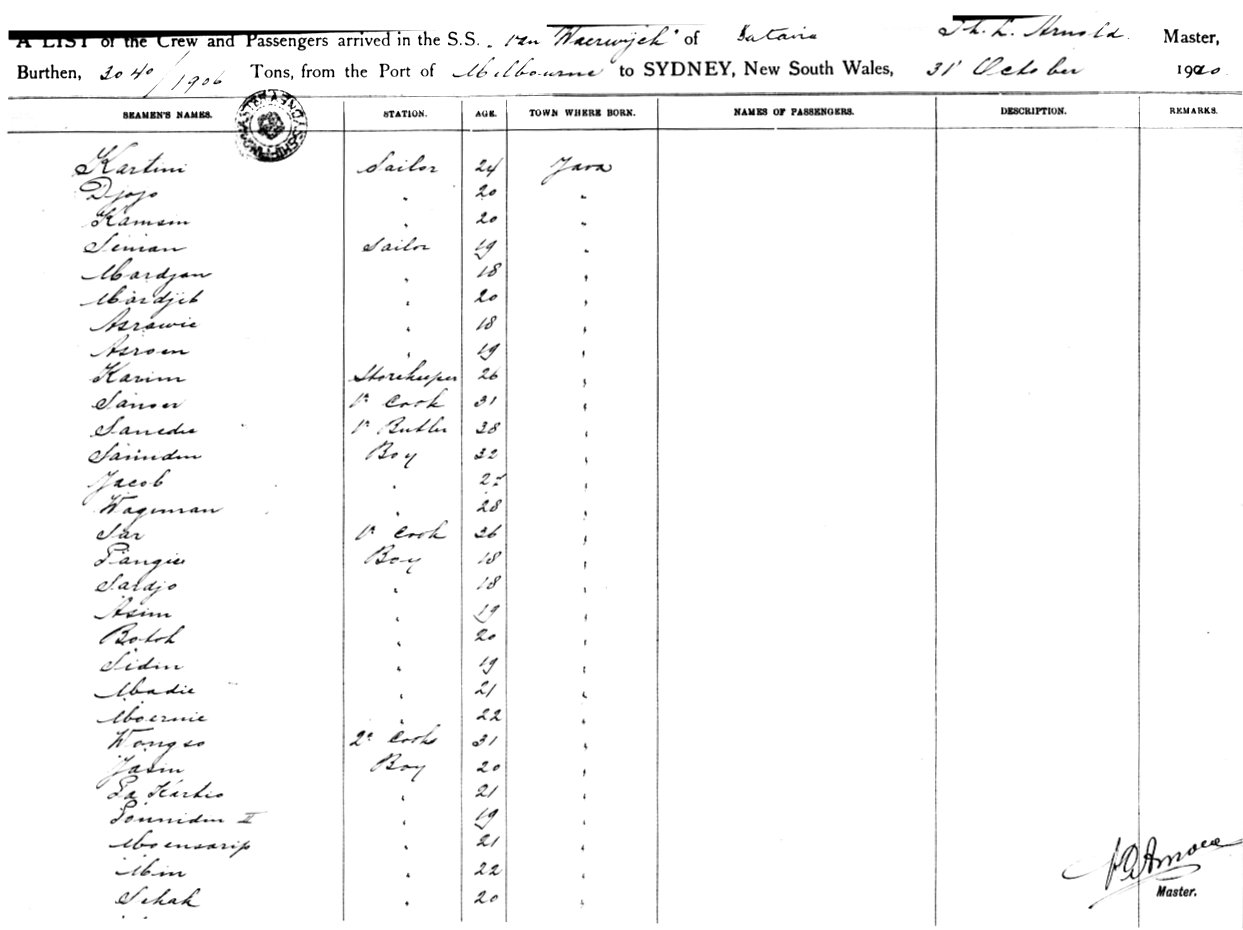 A LIST of the Crew and Passengers arrived in the S.S. "van Waerwijck" of Batavia Th. L. Arnold. Master,
Burthen, 3040/1906 Tons, from the Port of Melbourne to SYDNEY, New South Wales, 31 October 1910.
SEAMEN'S NAMES. STATION. AGE. TOWN WHERE BORN. NAMES OF PASSENGERS. DESCRIPTION. REMARKS.
Kartini Sailor 24 Java
Djojo " 20 "
Kamsin " 20 "
Seman Sailor 19 "
Mardjan " 18 "
Mardjib " 20 "
Asrawie " 18 "
Asroen " 19 "
Karim Storekeeper 26 "
1e Cook 31 "
1e Butler 38 "
Boy 32 "
Jacob " "
Wagiman " 28 "
Sar 1e Cook 36 "
Pangie Boy 18 "
Sardjo " 18 "
Asim " 19 "
Botoh " 20 "
Sidin " 19 "
Madie " 21 "
Moernie " 22 "
Wongso 2e Cook 31 "
Jasin Boy 20 "
Pa Kartio " 21 "
II " 19 "
Moensarip " 21 "
Min " 22 "
Sehak " 20 "
Master.